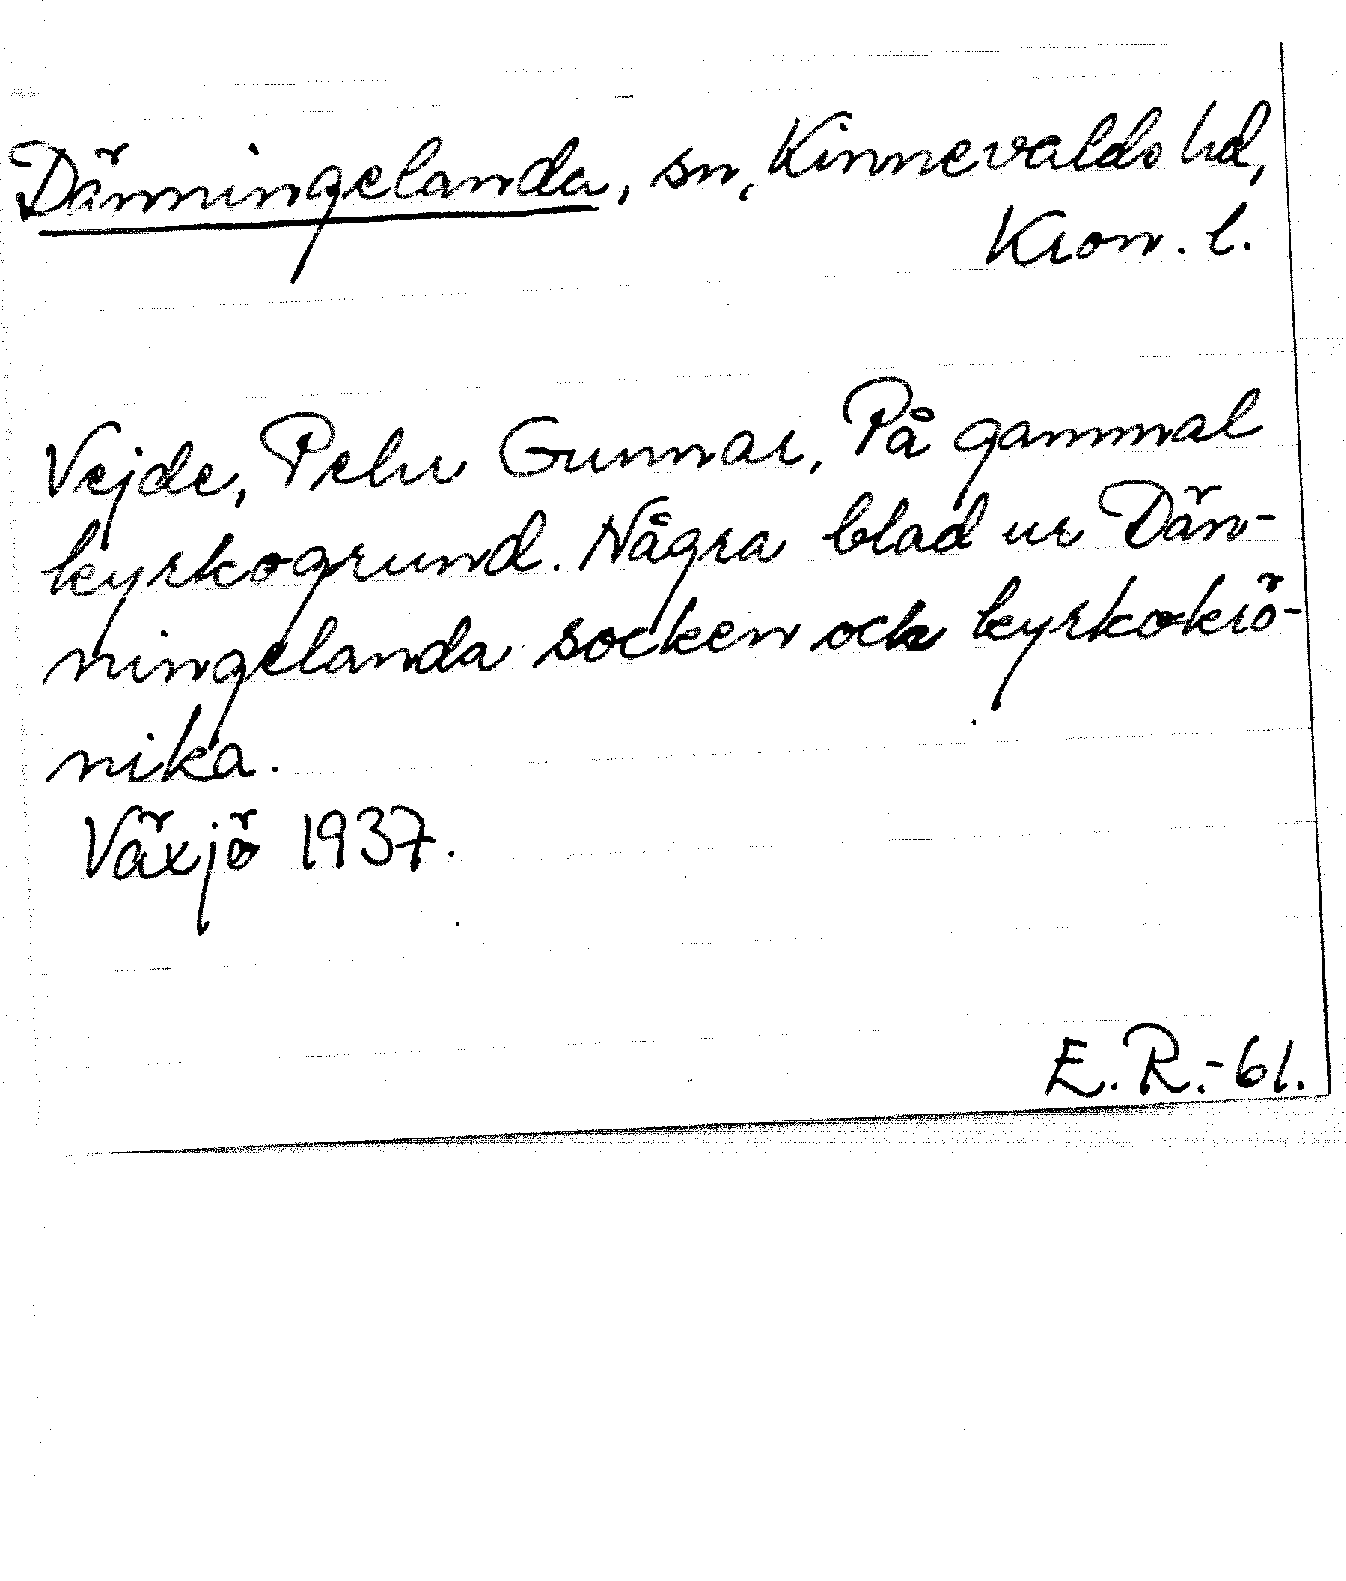 Dänningelanda, sn, Kinnevalds hd,
Kron. l.
Vejde, Pehr Gunnar, På gammal
kyrkogrund. Några blad ur Dän-
ningelanda socken och kyrkokrö-
nika.
Växjö 1937.
E. R. - 61.